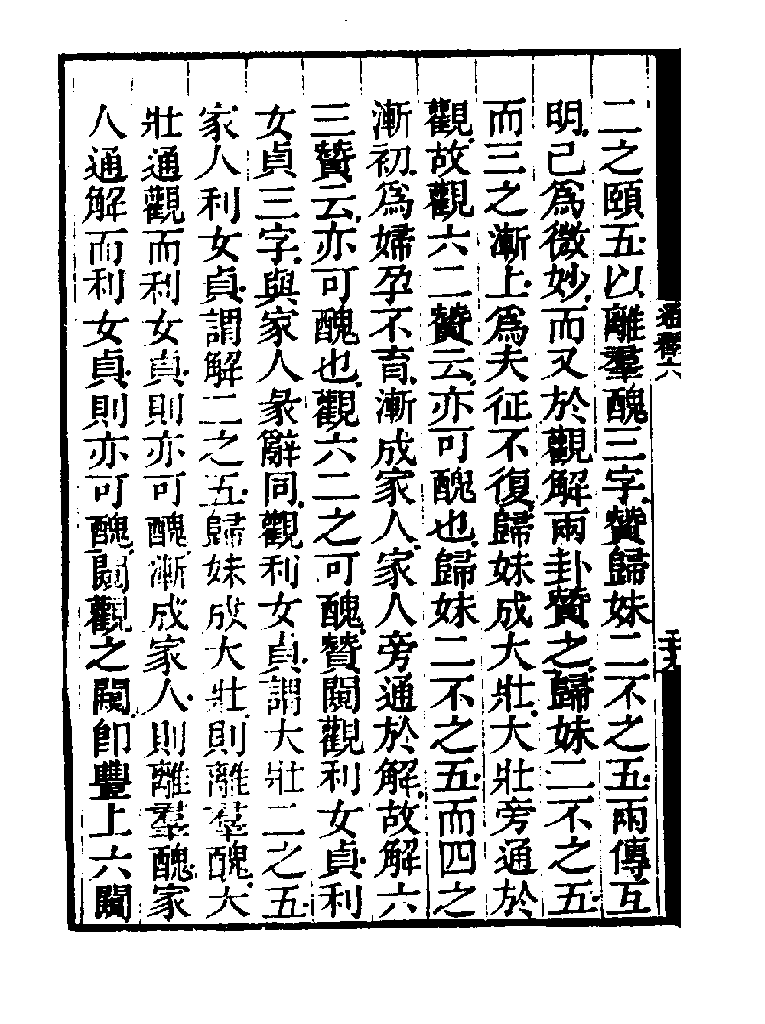 二之頤五以離羣醜三字贊歸妹二不之五兩傳互
明已爲微妙而又於觀解兩卦贊之歸妹二不之五
而三之漸上爲夫征不復歸妹成大壯大壯旁通於
觀故觀六二贊云亦可醜也歸妹二不之五而四之
漸初爲婦孕不育漸成家人家人旁通於解故解六
三贊云亦可醜也觀六二之可醜贊闚觀利女貞利
女貞三字與家人彖辭同觀利女貞謂大壯二之五
家人利女貞謂解二之五歸妹成大壯則離羣醜大
壯通觀而利女貞則亦可醜漸成家人則離羣醜家
人通解而利女貞則亦可醜闚觀之闚卽豐上六闚